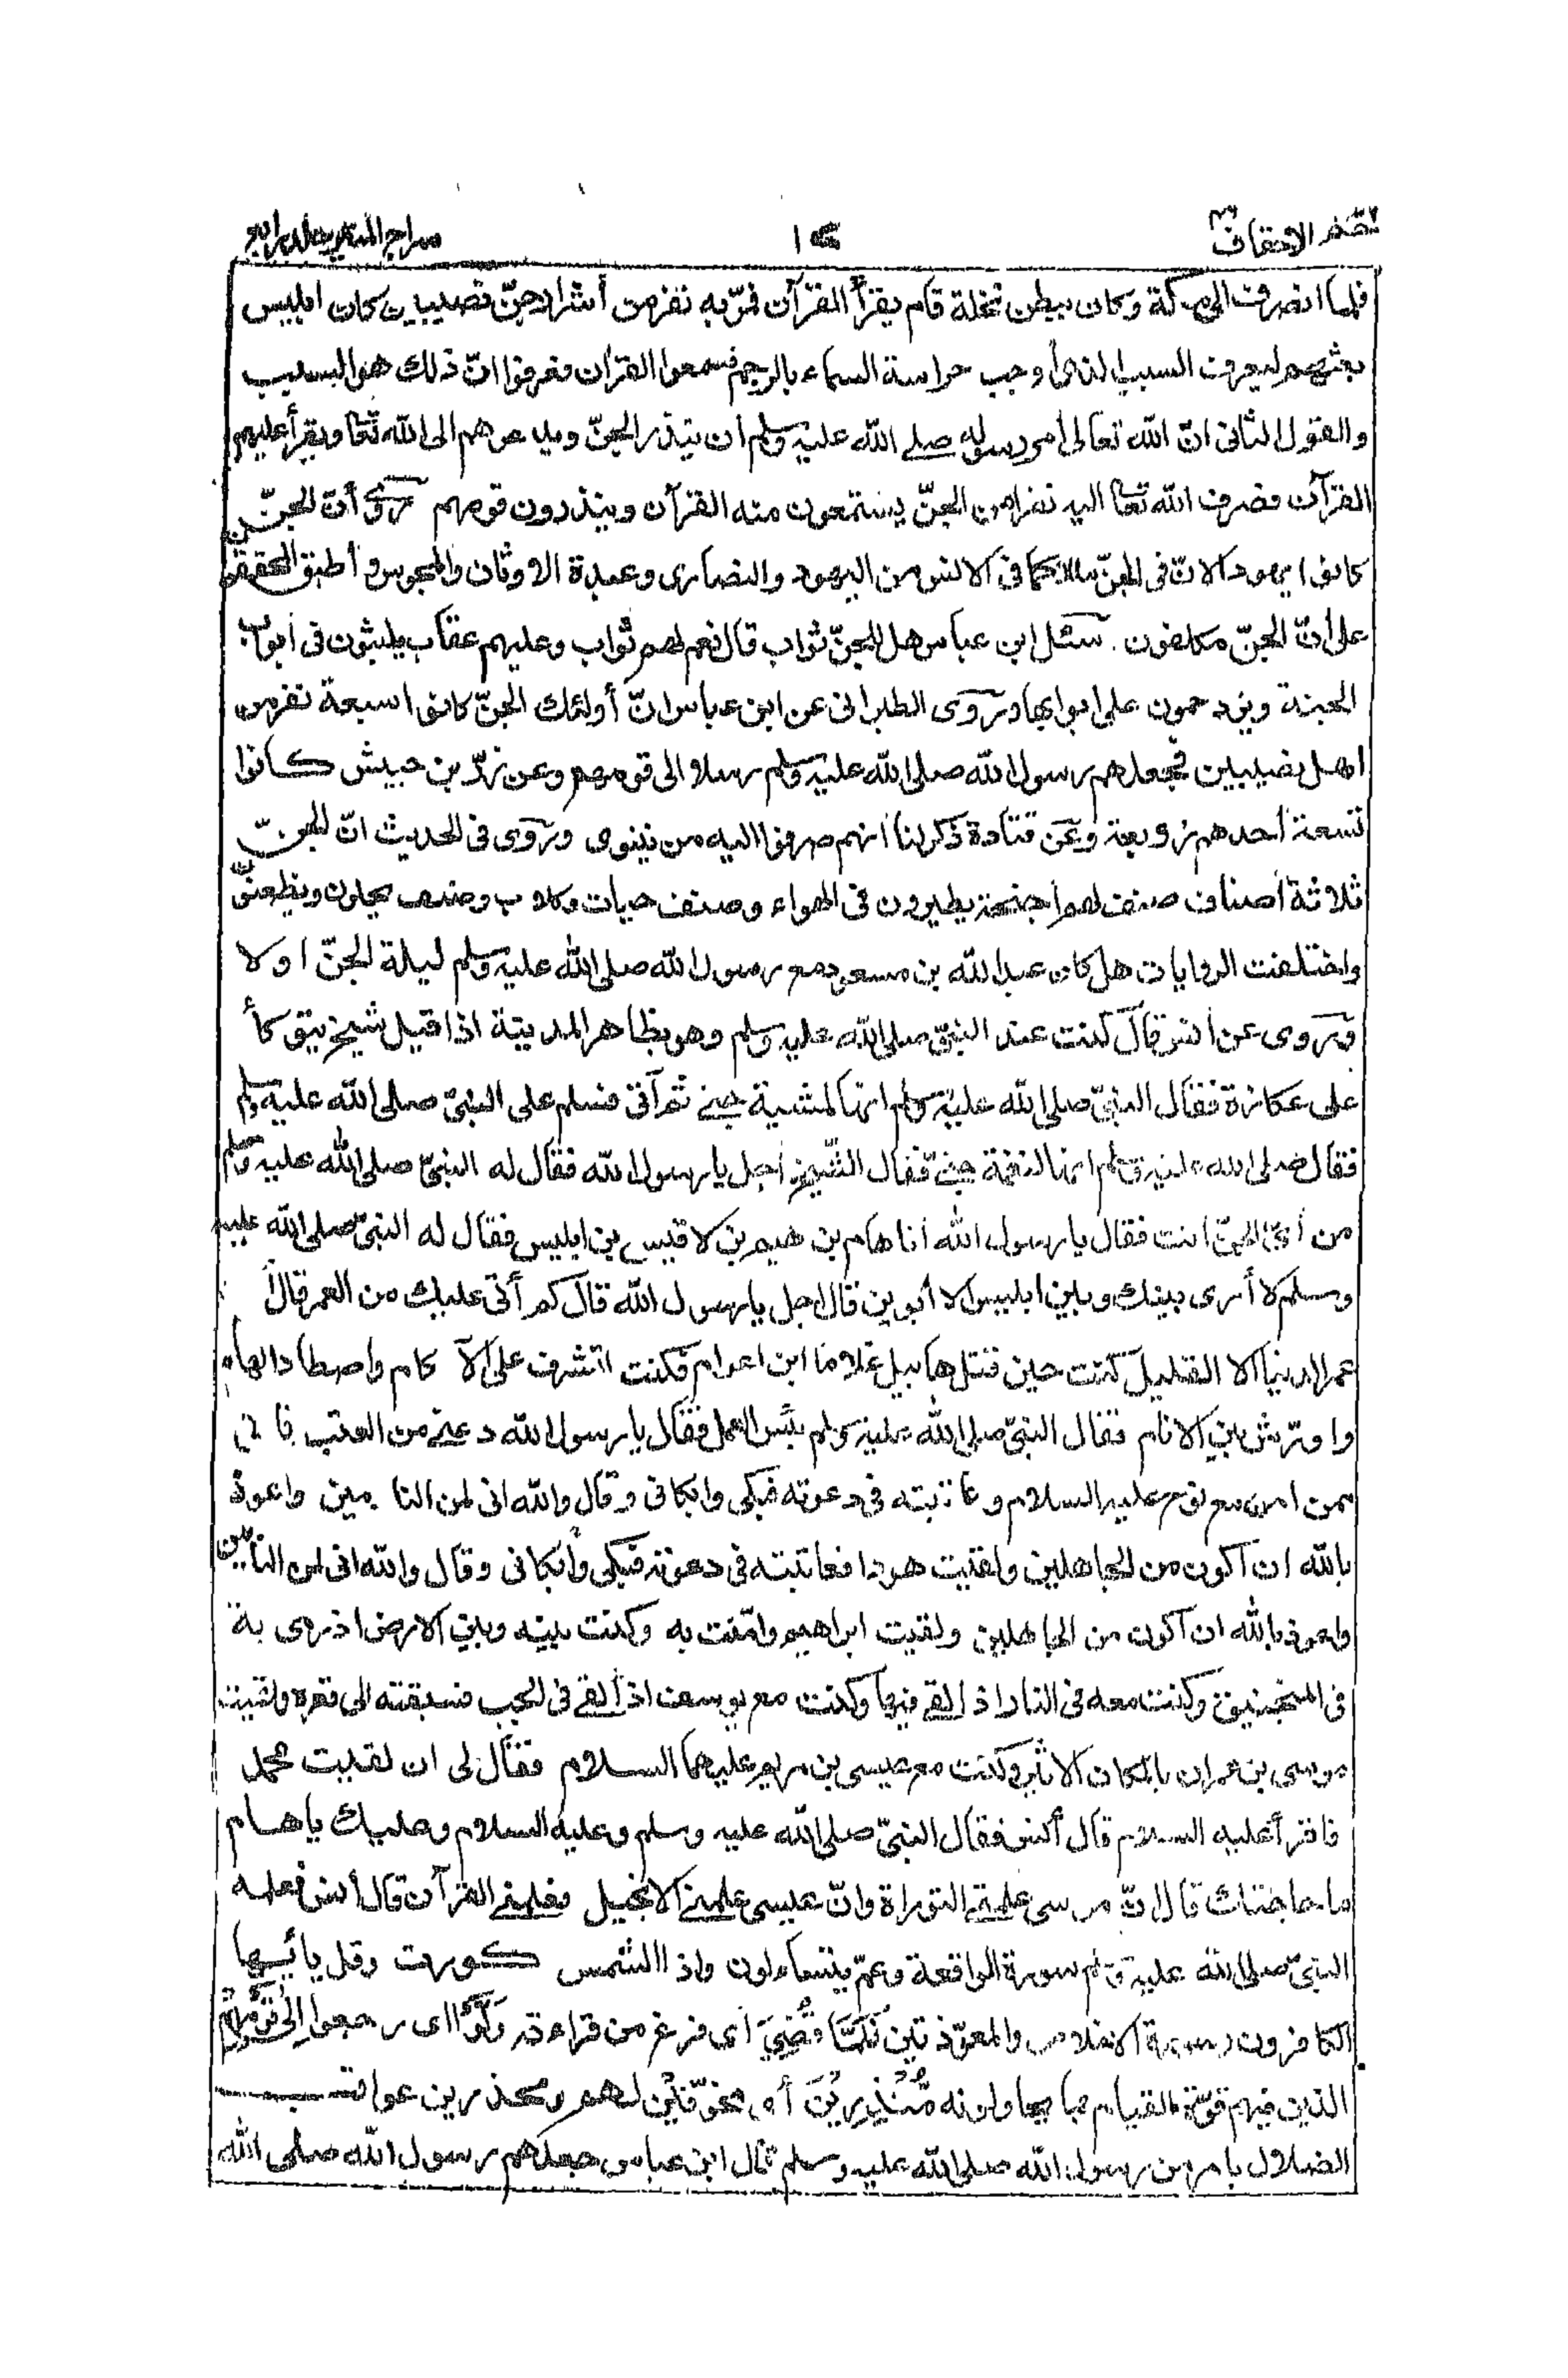 فلما انصرف الى مكة وكان ببطن نخلة قام يقرأ القرآن فمرّ به نفر من أشراد جنّ نصيبين كان ابليس
بعثهم ليعرف السبب الذى أوجب حراسة السماء بالرجم فسمعوا القرآن فعرفوا انّ ذلك هو السبب
والقول الثانى انّ الله تعالى أمر رسوله صلى الله عليه وسلم أن ينذر الجنّ ويدعوهم الى الله تعا ويقرأ عليهم
القرآن فصرف الله تعا اليه نفرا من الجنّ يستمعون منه القرآن وينذرون قومهم روى أنّ الجنّ
كانوا يهودا لانّ فى الجنّ مللا كما فى الانس من اليهود والنصارى وعبدة الاوثان والمجوس و أطبق المحققون
على أنّ الجنّ مكلفون . سئل ابن عباس هل للجنّ ثواب قال نعم لهم ثواب وعليهم عقاب يلبثون فى أبواب
الجنة ويزدحمون على ابوابها وروى الطبرانى عن ابن عباس انّ أولئك الجنّ كانوا سبعة نفر من
اهل نصيبين فجعلهم رسول الله صلى الله عليه وسلم رسلا الى قومهم وعن زرّ بن حبيش كانوا
تسعة أحدهم زوبعة وعن قتادة ذكر لنا أنهم صرفوا اليه من نينوى وروى فى الحديث انّ الجنّ
ثلاثة أصناف صنف لهم أجنحة يطيرون فى الهواء وصنف حيات وكلاب وصنف يحلون ويظعنون
واختلفت الروايات هل كان عبد الله بن مسعود مع رسول الله صلى الله عليه وسلم ليلة الجنّ اولا
وروى عن أنس قال كنت عند النبىّ صلى الله عليه وسلم وهو بظاهر المدينة اذا قبل شيخ يتوكأ
على عكازة فقال النبىّ صلى الله عليه وسلم انها لمشية جنى ثم أتى فسلم على النبىّ صلى الله عليه وسلم
فقال صلى الله عليه وسلم انها لنغمة جنىّ فقال الشيخ أجل يا رسول الله فقال له النبىّ صلى الله عليه وسلم
من أىّ الجنّ انت فقال يا رسول الله أنا هام بن هيم بن لاقيس بن ابليس فقال له النبىّ صلى الله عليه
وسلم لا أرى بينك وبين ابليس الا أبوين قال اجل يا رسول الله قال كم أتى عليك من العمر قال
عمر الدنيا الا القليل كنت حين قتل هابيل غلاما ابن اعوام فكنت اتشرف على الآكام واصطاد الهام
واورّش بين الانام فقال النبىّ صلى الله عليه وسلم بئس العمل فقال يا رسول الله دعنى من العتب فانى
ممن امن مع نوح عليه السلام وعاتبته فى دعوته فبكى وابكانى وقال والله انى لمن النادمين واعوذ
بالله ان اكون من الجاهلين ولقيت هودا فعاتبته فى دعوته فبكى وأبكانى وقال والله انى لمن النادمين
واعوذ بالله ان اكون من الجاهلين ولقيت ابراهيم وامنت به وكنت بينه وبين الارض اذ رمى به
فى المنجنيق وكنت معه فى النار اذ القى فيها وكنت مع يوسف اذ ألقى فى الجب فسبقته الى قعره ولقيت
موسى بن عمران بالمكان الاثير وكنت مع عيسى بن مريم عليهما السلام فقال لى ان لقيت محمد
فاقرأ عليه السلام قال أنس فقال النبىّ صلى الله عليه وسلم وعليه السلام وعليك يا هام
ما حاجتك قال انّ موسى علمنى التوراة وانّ عيسى علمنى الانجيل فعلمنى القرآن قال أنس فعلمه
النبىّ صلى الله عليه وسلم سورة الواقعة وعمّ يتساءلون واذا الشمس كورت وقل يا أيها
الكافرون وسورة الاخلاص والمعوّذتين فَلَمَّا قُضِىَ أى فرغ من قراءته وَلَّوْا اى رجعوا إِلى قَوْمِهِمْ
الذين فيهم قوّة القيام بما يحاولونه مُّنْذِرِيْنَ أى مخوّفين لهم ومحذرين عواقب
الضلال بامر من رسول الله صلى الله عليه وسلم قال ابن عباس جعلهم رسول الله صلى الله